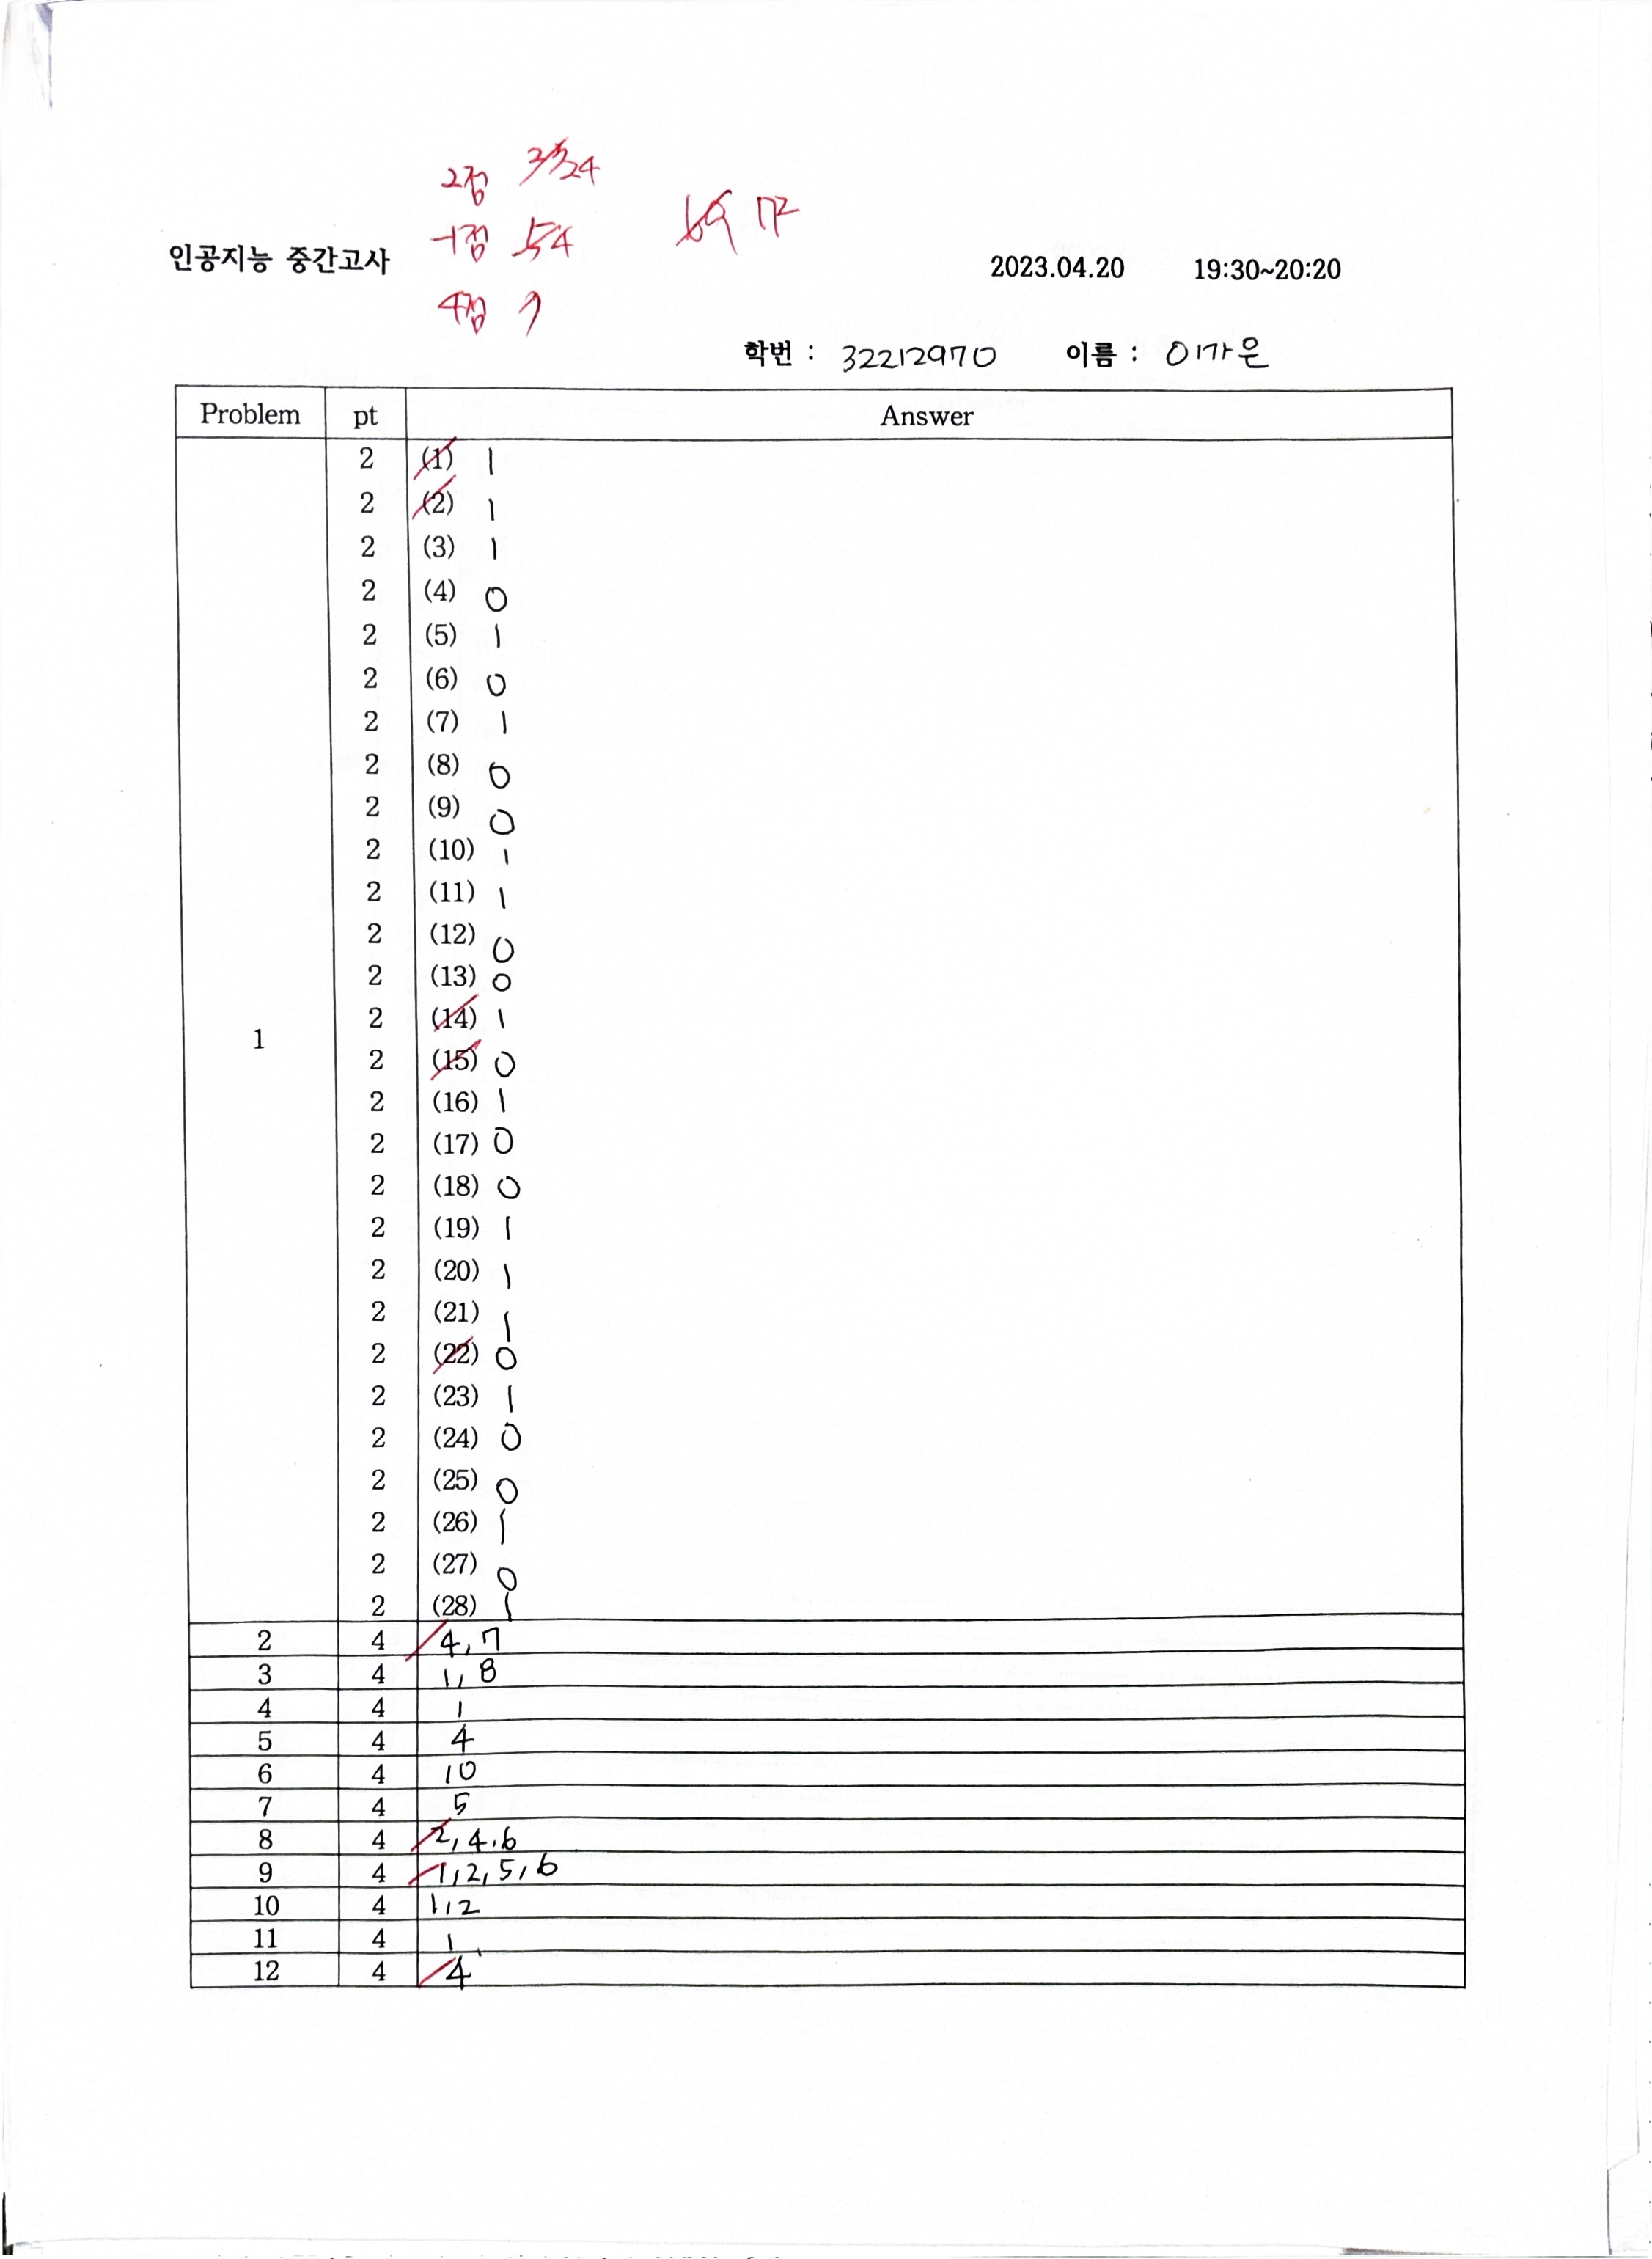 2점 24
인공지능 중간고사 -1점 4 72 2023.04.20 19:30~20:20
4점 7
학번 : 32212970 이름 : 이가은
Problem pt Answer
2 (1) 1
2 (2) 1
2 (3) 1
2 (4) 0
2 (5) 1
2 (6) 0
2 (7) 1
2 (8) 0
2 (9) 0
2 (10) 1
2 (11) 1
2 (12) 0
2 (13) 0
2 (14) 1
1 2 (15) 0
2 (16) 1
2 (17) 0
2 (18) 0
2 (19) 1
2 (20) 1
2 (21) 1
2 (22) 0
2 (23) 1
2 (24) 0
2 (25) 0
2 (26) 1
2 (27) 0
2 (28) 1
2 4 4, 7
3 4 1, 8
4 4 1
5 4 4
6 4 10
7 4 5
8 4 2, 4, 6
9 4 1, 2, 5, 6
10 4 1, 2
11 4 1
12 4 4